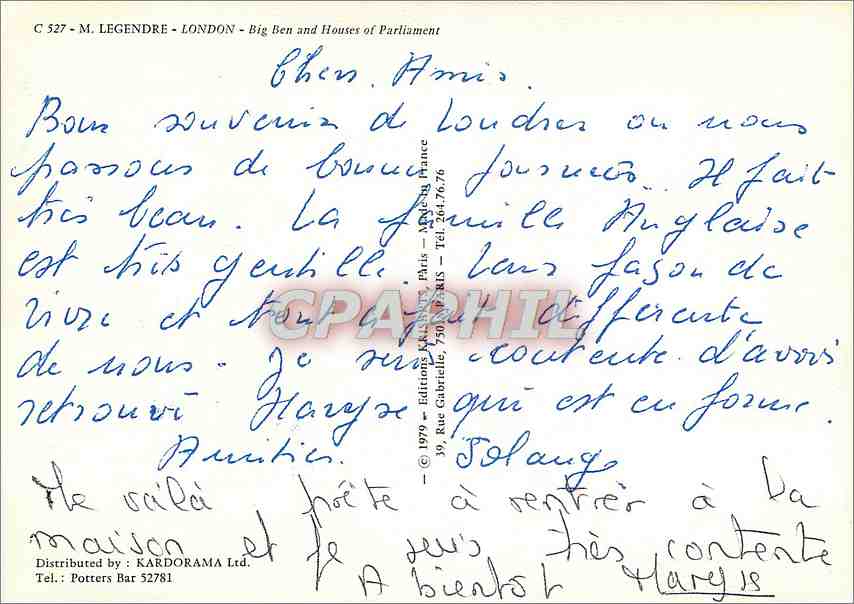 C 527 - M. LEGENDRE - LONDON - Big Ben and Houses of Parliament
Chers Amis.
Bons souvenirs de Londres ou nous
passons de bonnes journées. Il fait
très beau. La famille Anglaise
est très gentille. Leur façon de
vivre et tout à fait différente
de nous. Je suis contente d'avoir
retrouvé Maryse qui est en forme.
Amitiés. Solange
Me voilà prête à rentrer à la
maison et je suis très contente
A bientôt Maryse
Distributed by : KARDORAMA Ltd.
Tel. : Potters Bar 52781
— © 1979 - Editions KRISBETS, Paris — Made in France
39, Rue Gabrielle, PARIS — Tél. 264.76.76
CPARPHIL